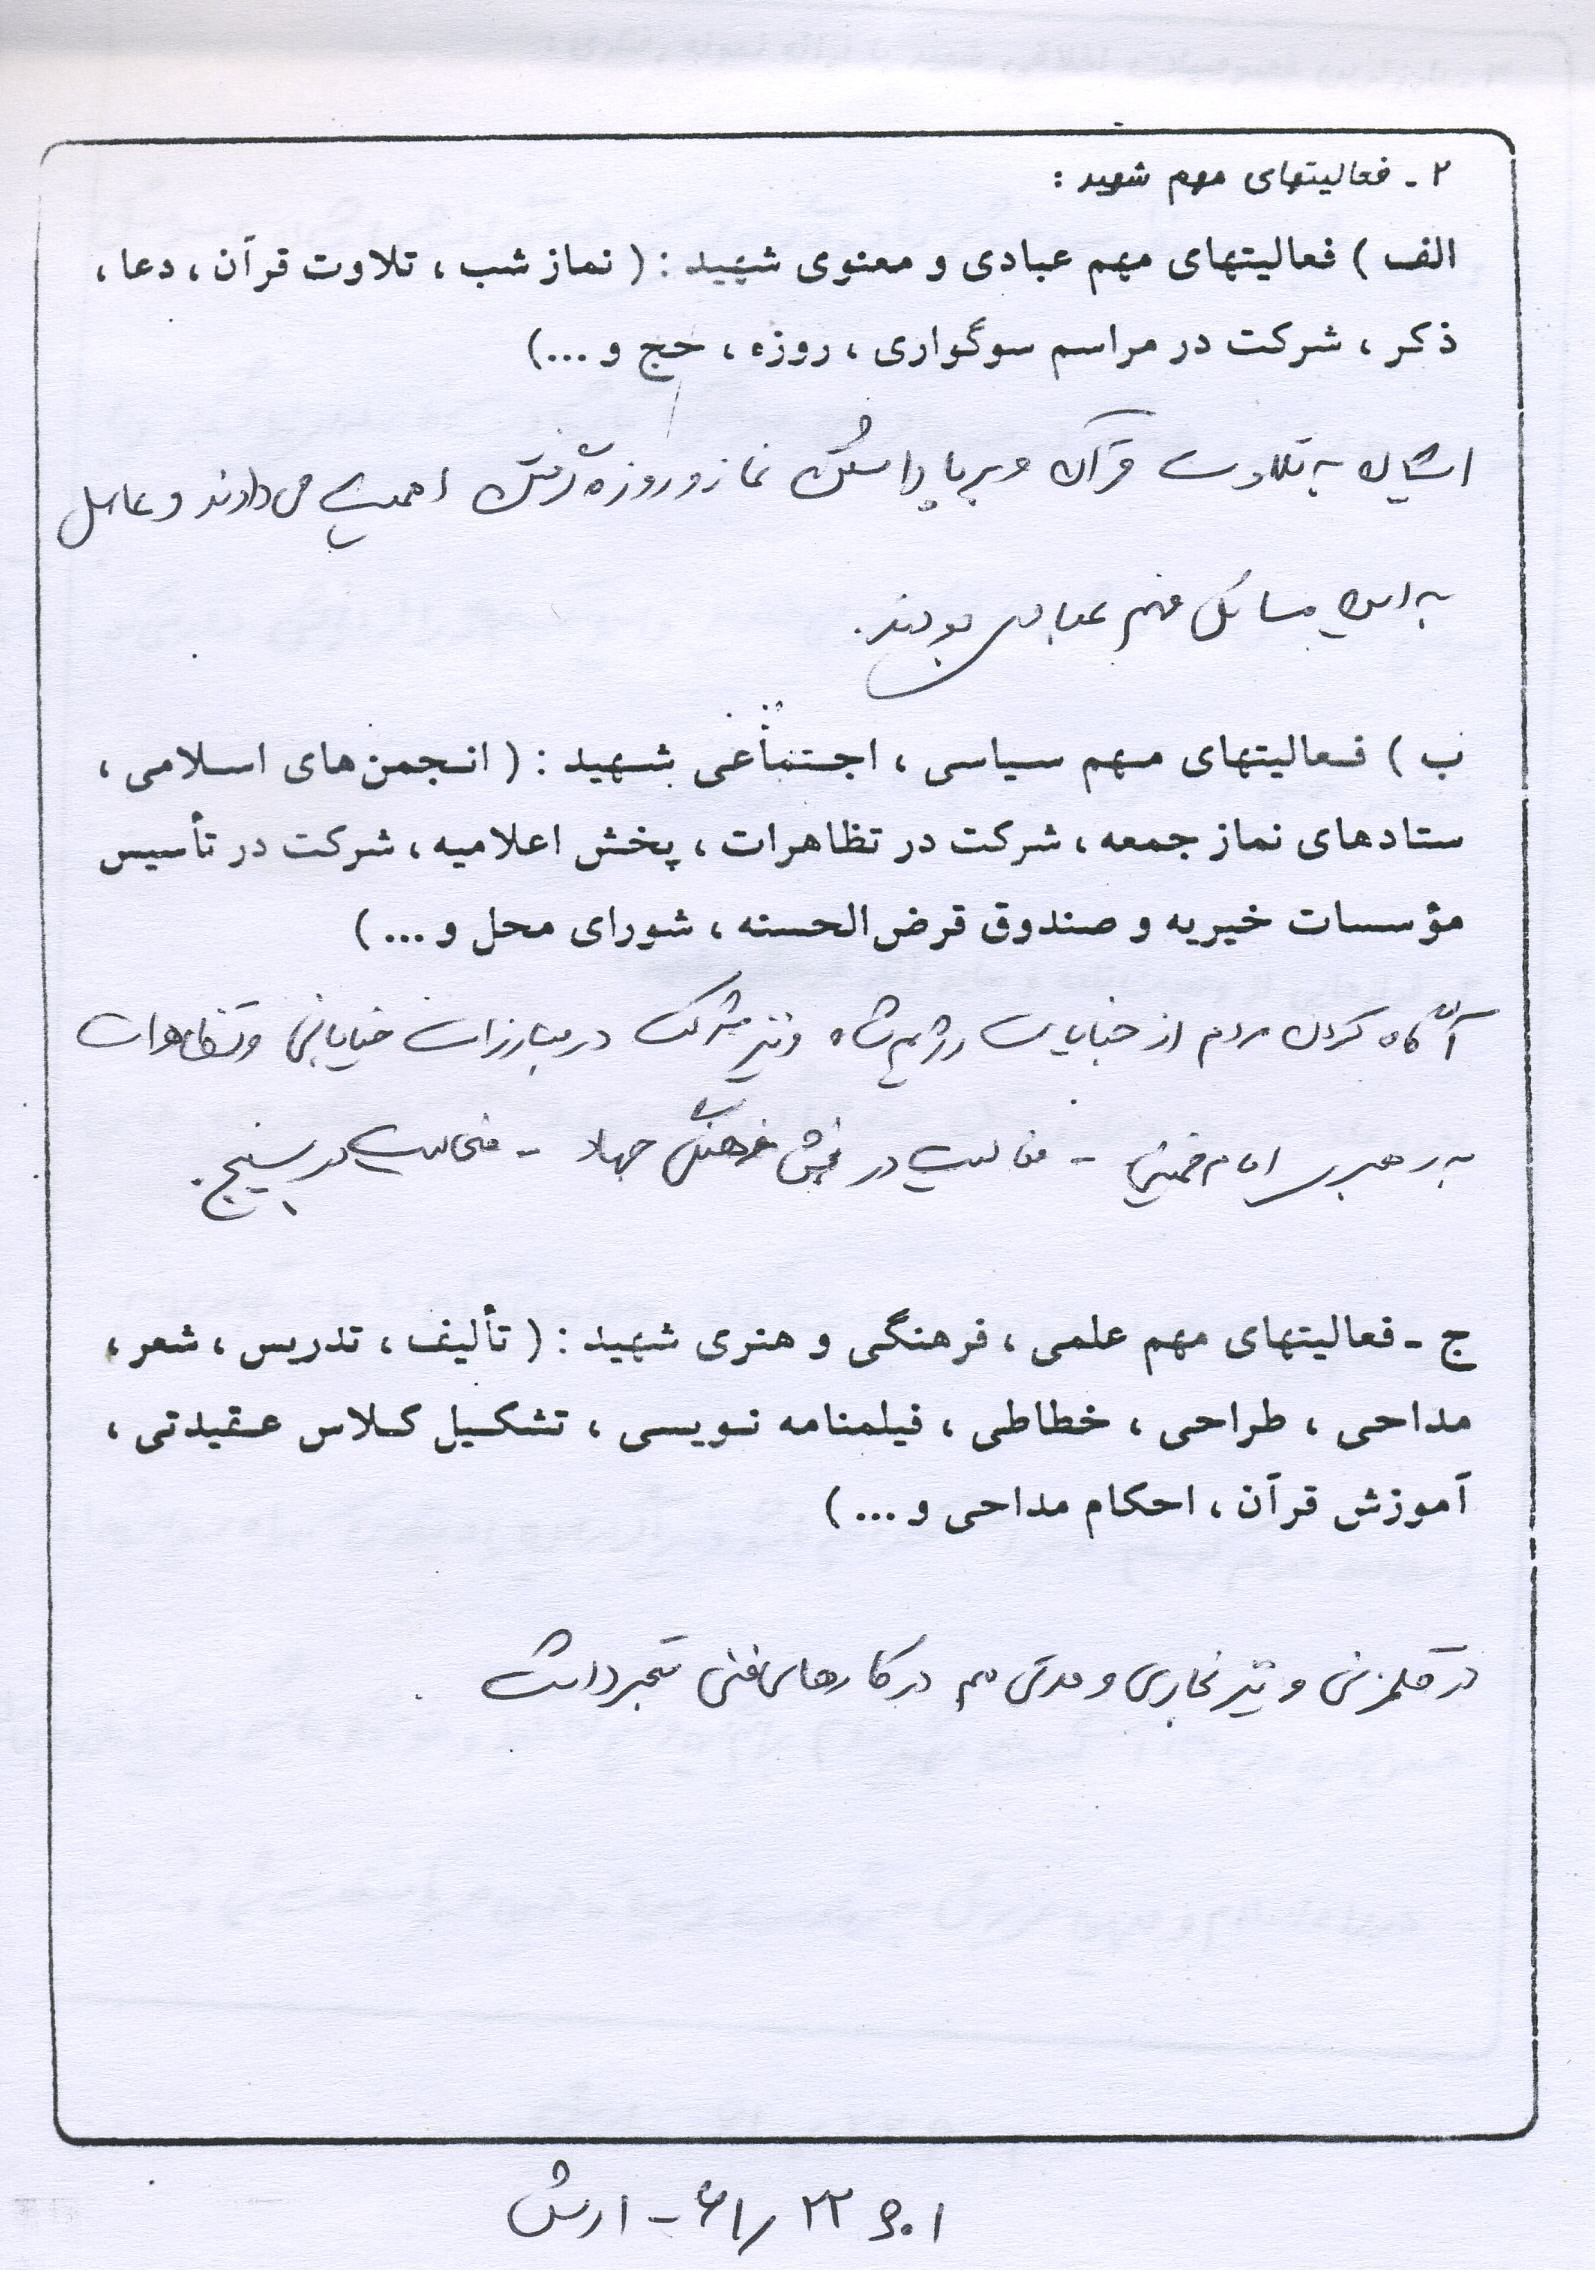 ۲ ـ فعالیتهای مهم شهید :
الف ) فعالیتهای مهم عبادی و معنوی شهید : ( نماز شب ، تلاوت قرآن ، دعا ،
ذکر ، شرکت در مراسم سوگواری ، روزه ، حج و ...)
ایشان به تلاوت قرآن و برپا داشتن نماز و روزه گرفتن اهمیت می دادند و عامل
به این مسائل مهم عبادی بودند.
ب ) فعالیتهای مهم سیاسی ، اجتماعی شهید : ( انجمن‌های اسلامی ،
ستادهای نماز جمعه ، شرکت در تظاهرات ، پخش اعلامیه ، شرکت در تأسیس
مؤسسات خیریه و صندوق قرض‌الحسنه ، شورای محل و ... )
آگاه کردن مردم از خیانات رژیم شاه و نیز شرکت در مبارزات خیابانی و تظاهرات
به رهبری امام خمینی - فعالیت در بخش فرهنگی جهاد - فعالیت در بسیج.
ج ـ فعالیتهای مهم علمی ، فرهنگی و هنری شهید : ( تألیف ، تدریس ، شعر ،
مداحی ، طراحی ، خطاطی ، فیلمنامه نویسی ، تشکیل کلاس عقیدتی ،
آموزش قرآن ، احکام مداحی و ... )
در قلمزنی و نیز نجاری و مدتی هم در کارهای فنی تبحر داشت
ارش